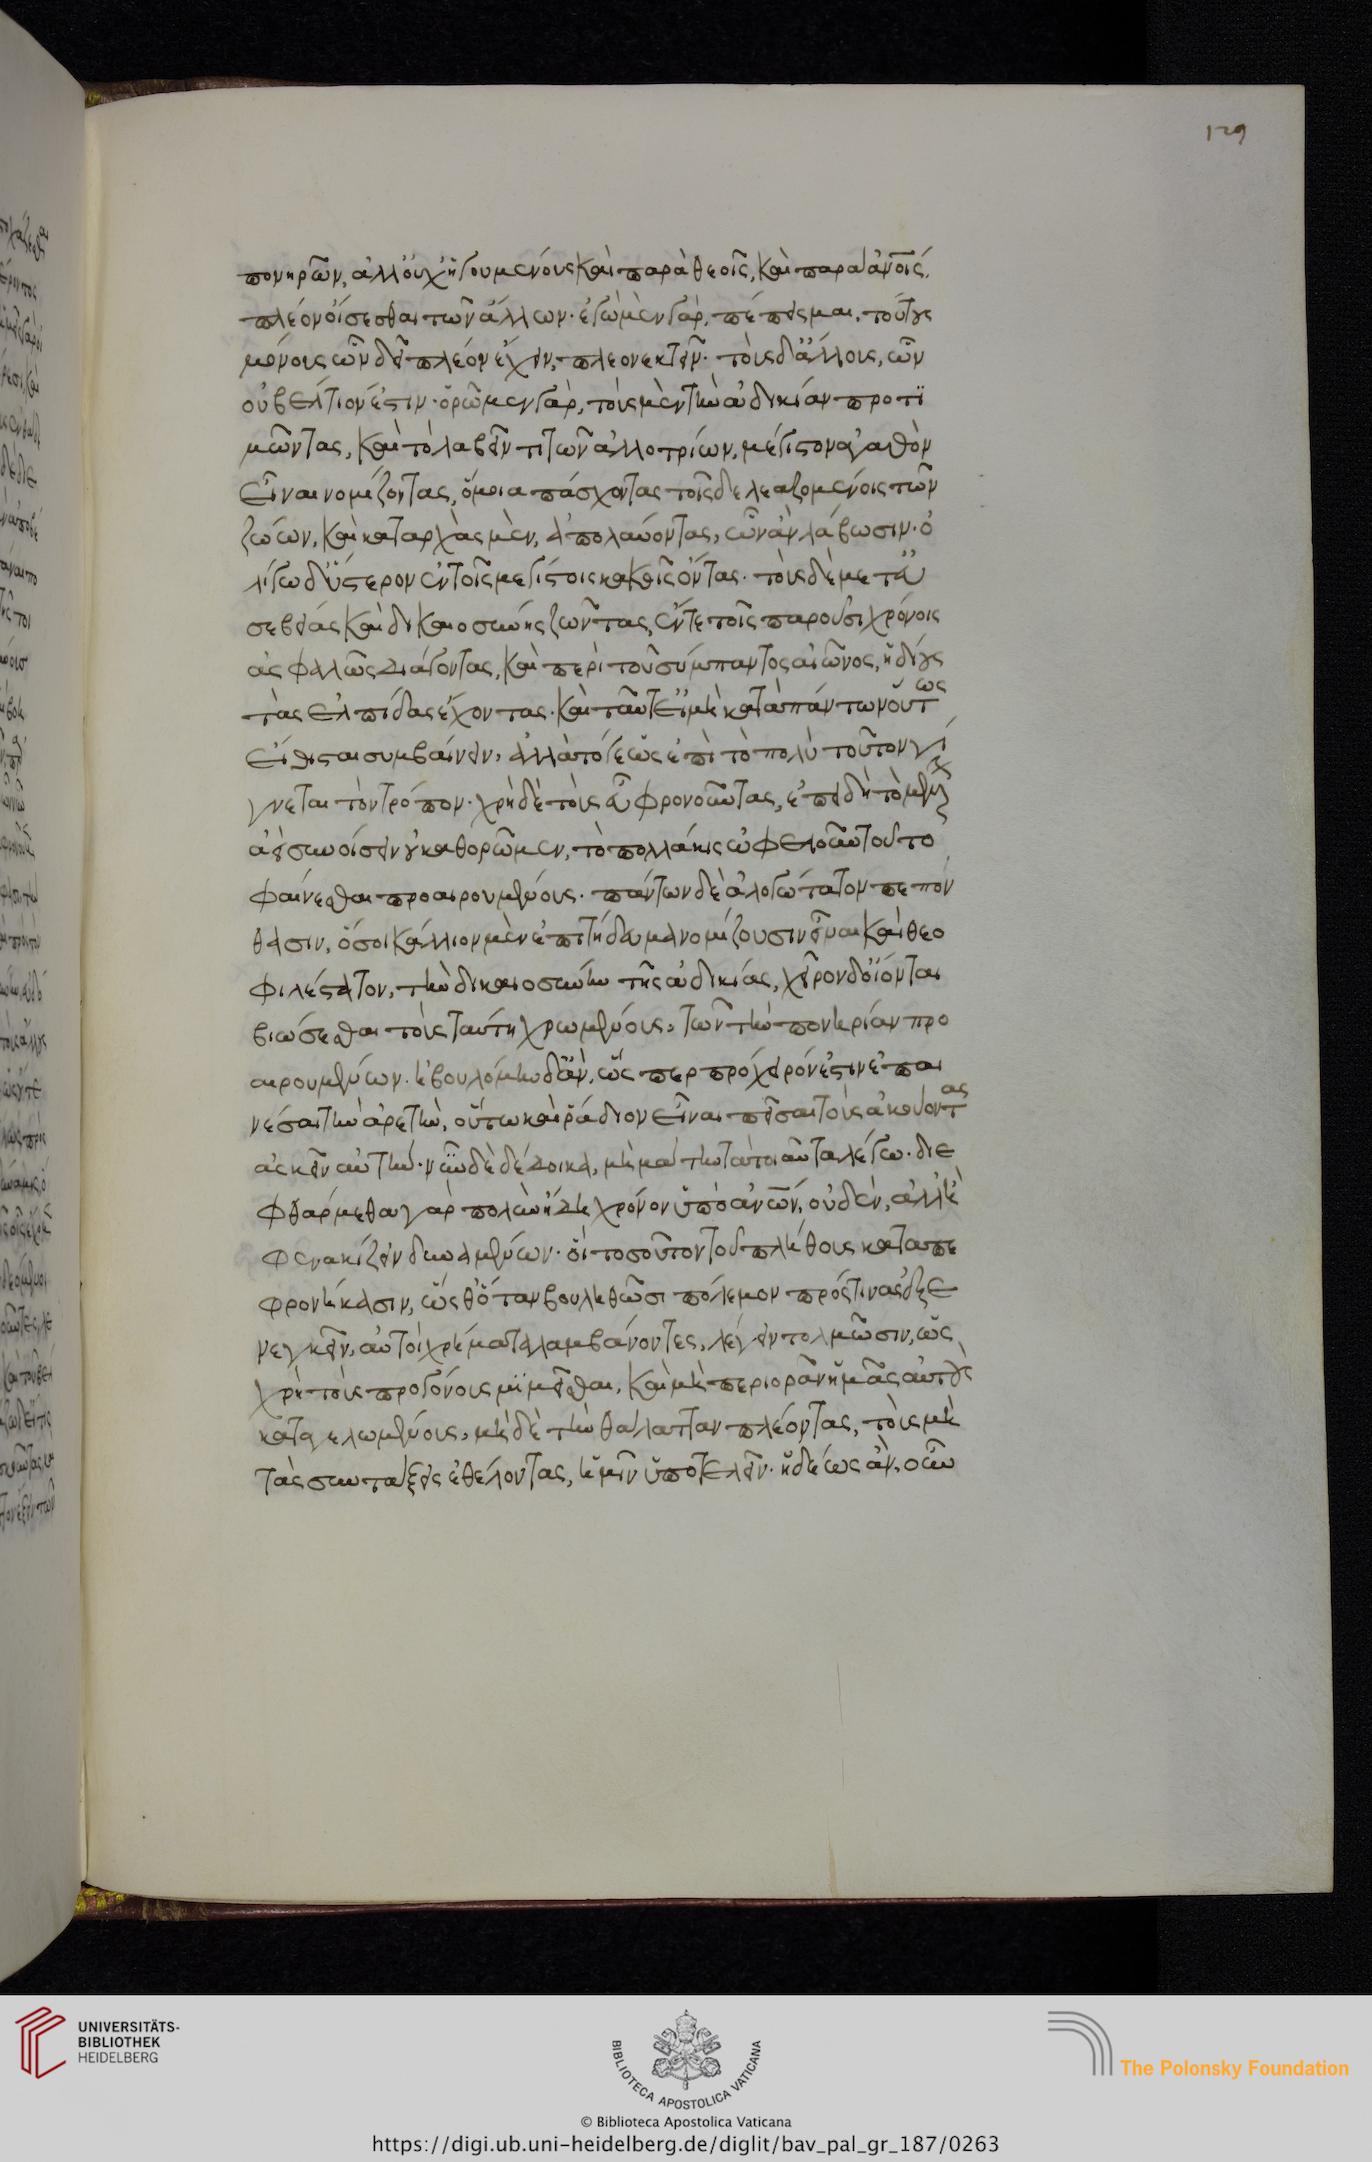 129
πονηρῶν, ἀλλ' οὐχ ἡγουμένους καὶ παρὰ θεοῖς, καὶ παρὰ ἀνοις,
πλέον οἴσεσθαι τῶν ἄλλων· ἐγὼ μὲν γὰρ, πέπεισμαι, τούτους
μόνους ὧν δεῖ πλέον ἔχειν, πλεονεκτεῖν· τοὺς δ' ἄλλους, ὧν
οὐ βέλτιον ἐστιν· ὁρῶμεν γὰρ, τοὺς μὲν τὴν ἀδικίαν προτι
μῶντας, καὶ τὸ λαβεῖν τι τῶν ἀλλοτρίων, μέγιστον ἀγαθὸν
εἶναι νομίζοντας, ὅμοια πάσχοντας τοῖς δελεαζομένοις τῶν
ζώων, καὶ κατ' ἀρχὰς μὲν, ἀπολαύοντας, ὧν ἂν λάβωσιν· ὀ
λίγω δ' ὕστερον ἐν τοῖς μεγίστοις κακοῖς ὄντας· τοὺς δὲ μετ' εὐ
σεβείας καὶ δικαιοσύνης ζῶντας, ἔν τε τοῖς παροῦσι χρόνοις
ἀσφαλῶς διάγοντας, καὶ περὶ τοῦ σύμπαντος αἰῶνος, ἡδίους
τὰς ἐλπίδας ἔχοντας· καὶ ταῦτ' εἰ μὴ κατὰ πάντων οὕτως
εἴθισται συμβαίνειν, ἀλλὰ τό γε ὡς ἐπὶ τὸ πολὺ τοῦτον γί
γνεται τὸν τρόπον· χρὴ δὲ τοὺς εὖ φρονοῦντας, ἐπειδὴ τὸ μέλλον
ἀεὶ συνοίσειν οὐ καθορῶμεν, τὸ πολλάκις ὠφελοῦν τοῦτο
φαίνεσθαι προαιρουμένους· πάντων δὲ ἀλογώτατον πεπόν
θασιν, ὅσοι κάλλιον μὲν ἐπιτήδευμα νομίζουσιν εἶναι καὶ θεο
φιλέστατον, τὴν δικαιοσύνην τῆς ἀδικίας, χεῖρον δ' οἴονται
βιώσεσθαι τοὺς ταύτη χρωμένους, τῶν τὴν πονηρίαν προ
αιρουμένων· ἠβουλόμην δ' ἂν, ὥσπερ πρόχειρόν ἐστιν ἐπαι
νέσαι τὴν ἀρετὴν, οὕτω καὶ ῥάδιον εἶναι πεῖσαι τοὺς ἀκούοντας
ἀσκεῖν αὐτήν· νῦν δὲ δέδοικα, μὴ μάτην τὰ τοιαῦτα λέγω· διε
φθάρμεθα γὰρ πολὺν ἤδη χρόνον ὑπὸ ἀνων, οὐδὲν, ἀλλ' ἢ
φενακίζειν δυναμένων· οἳ τοσοῦτον τοῦ πλήθους καταπε
φρονήκασιν, ὥσθ' ὅταν βουληθῶσι πόλεμον πρός τινας ἐξε
νεγκεῖν, αὐτοὶ χρήματα λαμβάνοντες, λέγειν τολμῶσιν, ὡς
χρὴ τοὺς προγόνους μιμεῖσθαι, καὶ μὴ περιορᾶν ἡμᾶς αὐτοὺς
καταγελωμένους, μὴ δὲ τὴν θάλατταν πλέοντας, τοὺς μὴ
τὰς συντάξεις ἐθέλοντας, ἡμῖν ὑποτελεῖν· ἡδέως ἂν, οὖν
UNIVERSITÄTS-
BIBLIOTHEK
HEIDELBERG
BIBLIOTECA APOSTOLICA VATICANA
The Polonsky Foundation
© Biblioteca Apostolica Vaticana
https://digi.ub.uni-heidelberg.de/diglit/bav_pal_gr_187/0263